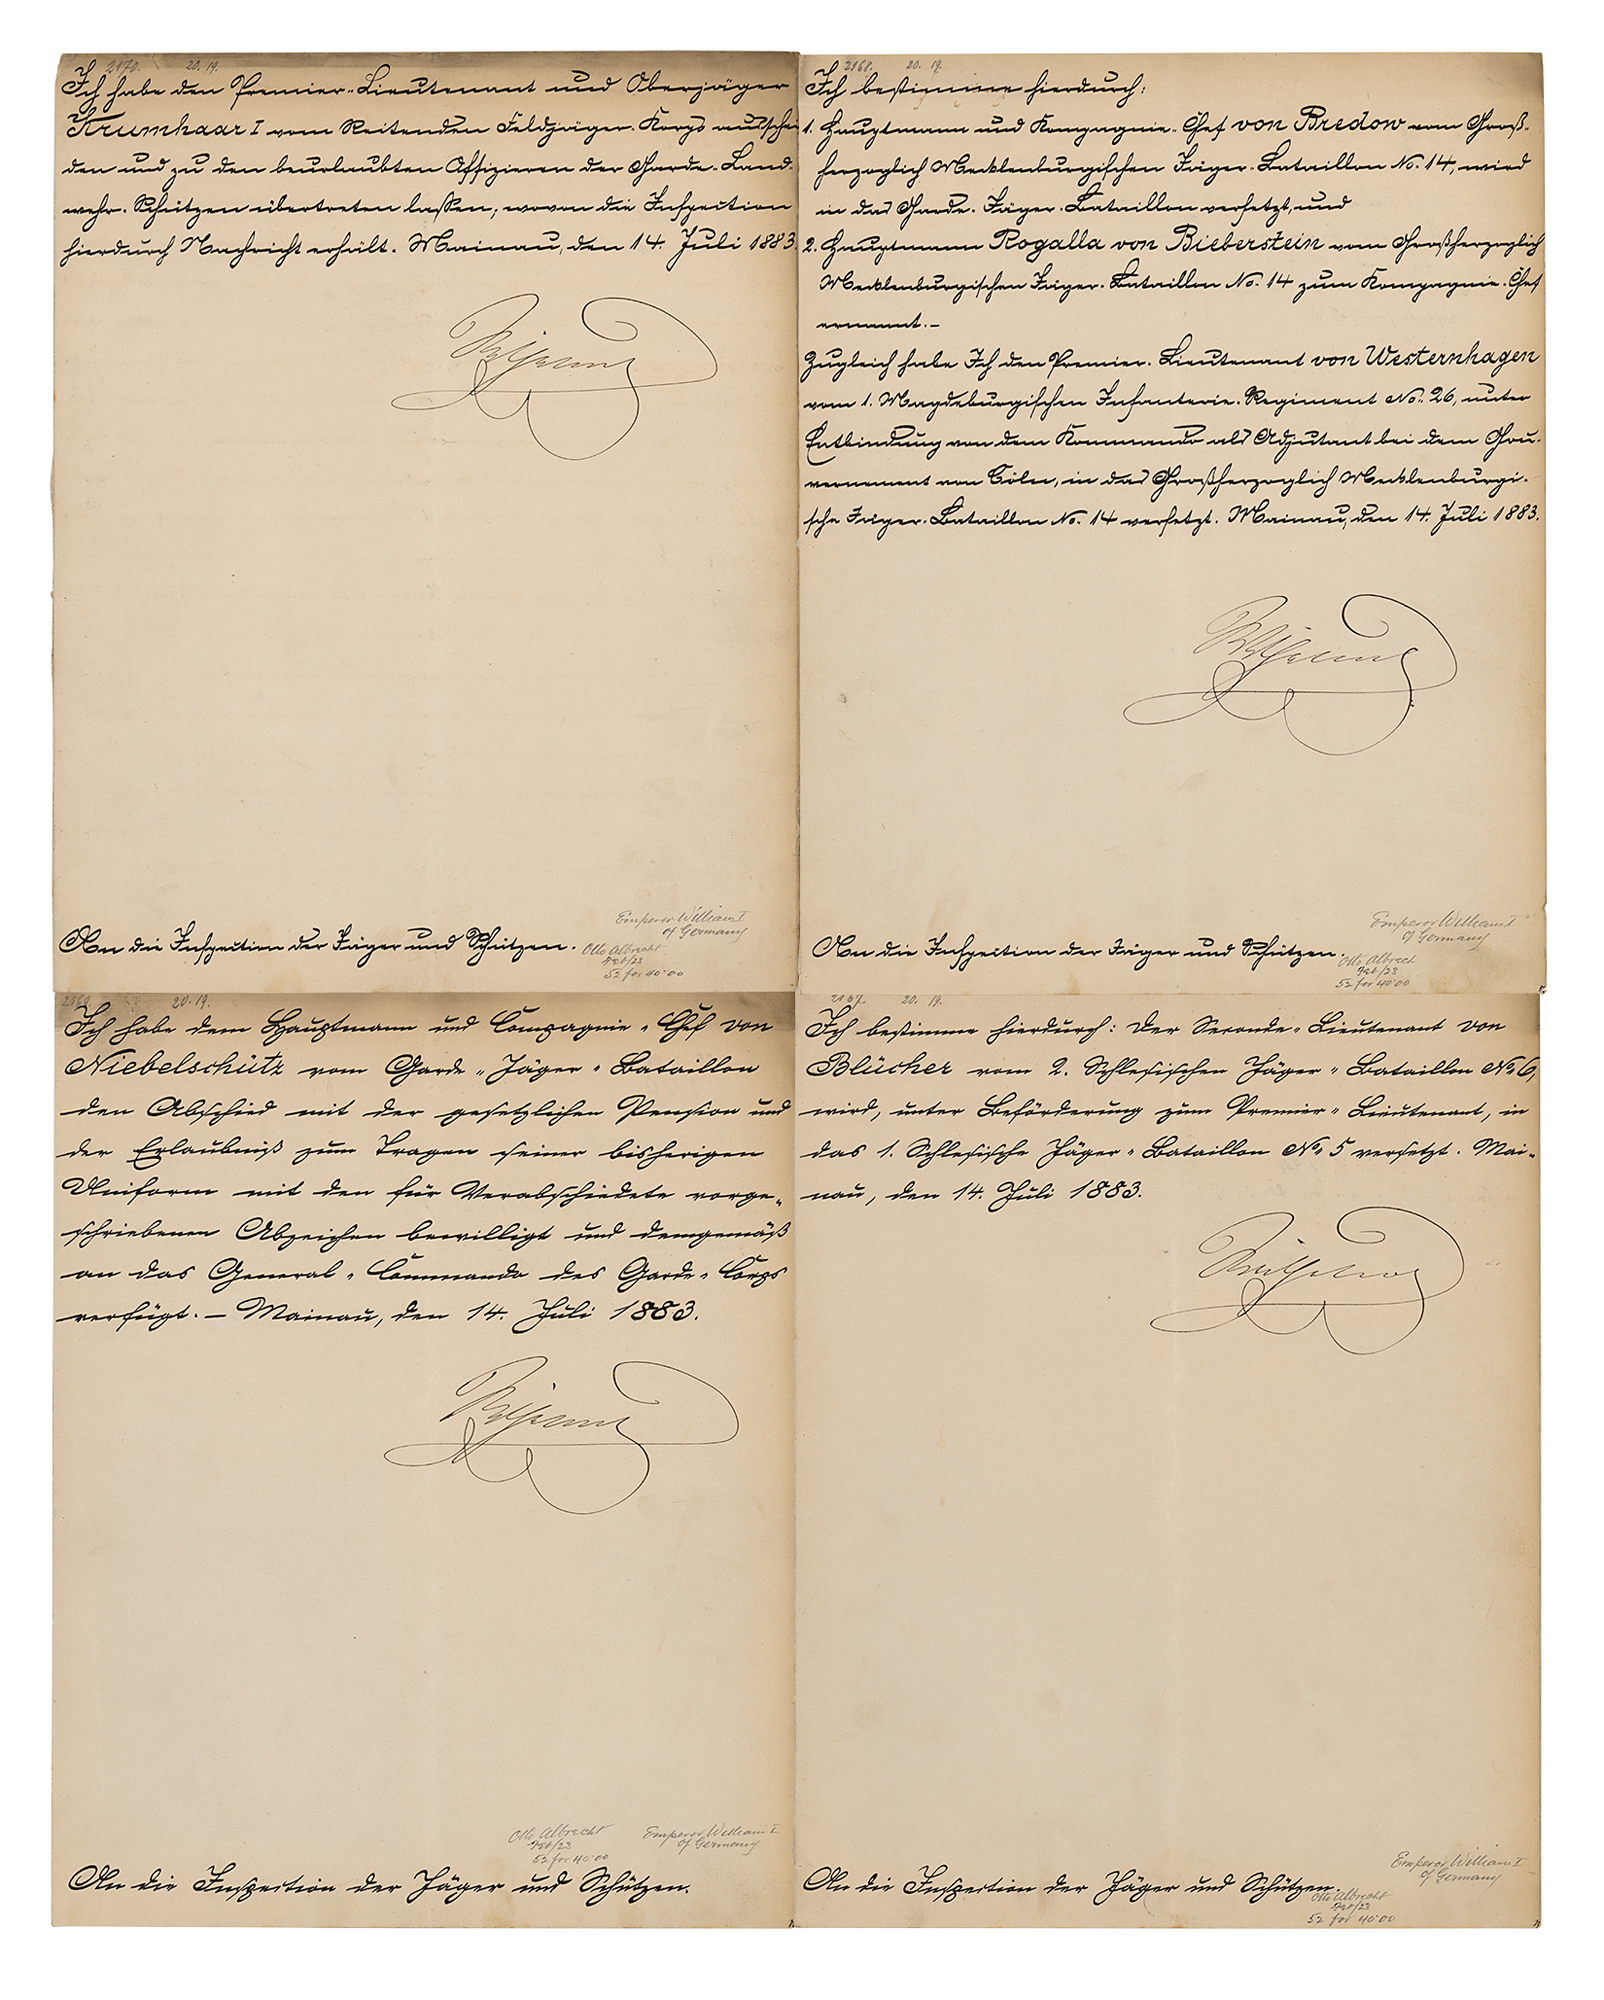 2170. 20. 19.
Ich habe den Premier-Lieutenant und Oberjäger
Krumhaar I vom Reitenden Feldjäger-Korps ausschei
den und zu den beurlaubten Offizieren der Garde-Land-
wehr-Schützen übertreten lassen, wovon die Inspection
hierdurch Nachricht erhält. Mainau, den 14. Juli 1883.
Wilhelm
Emperor William I
of Germany
An die Inspection der Jäger und Schützen.
Otto Albrecht
Feb/23
52 for 40.00
2168. 20. 19.
Ich bestimme hierdurch:
1. Hauptmann und Kompagnie-Chef von Bredow vom Groß-
herzoglich Mecklenburgischen Jäger-Bataillon No. 14, wird
in das Garde-Jäger-Bataillon versetzt, und
2. Hauptmann Rogalla von Bieberstein vom Großherzoglich
Mecklenburgischen Jäger-Bataillon No. 14 zum Kompagnie-Chef
ernannt.–
Zugleich habe Ich den Premier-Lieutenant von Westernhagen
vom 1. Magdeburgischen Infanterie-Regiment No. 26, unter
Entbindung von dem Kommando als Adjutant bei dem Gou-
vernement von Cöln, in das Großherzoglich Mecklenburgi-
sche Jäger-Bataillon No. 14 versetzt. Mainau, den 14. Juli 1883.
Wilhelm
Emperor William I
of Germany
An die Inspection der Jäger und Schützen.
Otto Albrech
Feb/23
52 for 40.00
2169. 20. 19.
Ich habe dem Hauptmann und Compagnie-Chef von
Niebelschütz vom Garde-Jäger-Bataillon
den Abschied mit der gesetzlichen Pension und
der Erlaubniß zum Tragen seiner bisherigen
Uniform mit den für Verabschiedete vorge-
schriebenen Abzeichen bewilligt und demgemäß
an das General-Commando des Garde-Corps
verfügt. – Mainau, den 14. Juli 1883.
Wilhelm
Otto Albrecht
Feb/23
52 for 40.00
Emperor William I
of Germany
An die Inspection der Jäger und Schützen.
2167. 20. 19.
Ich bestimme hierdurch: Der Seconde-Lieutenant von
Blücher vom 2. Schlesischen Jäger-Bataillon No. 6,
wird, unter Beförderung zum Premier-Lieutenant, in
das 1. Schlesische Jäger-Bataillon No. 5 versetzt. Mai-
nau, den 14. Juli 1883.
Wilhelm
Emperor William I
of Germany
An die Inspection der Jäger und Schützen.
Otto Albrecht
Feb/23
52 for 40.00